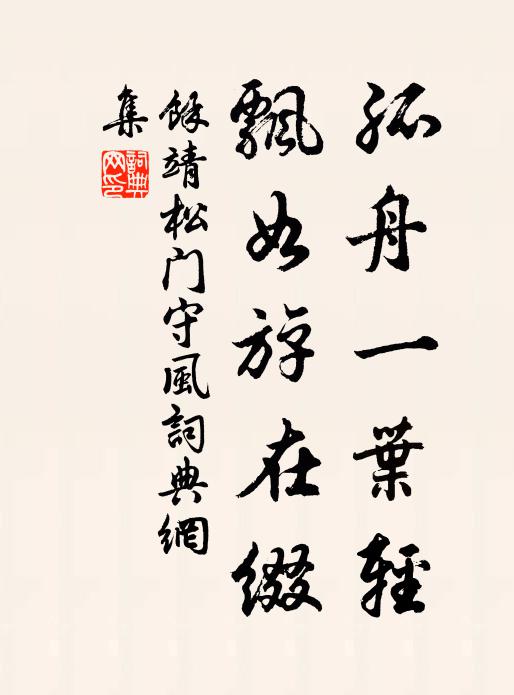 孤舟一葉輕
飄如游在綴
餘靖松门守風詞典網
集
詞典網印